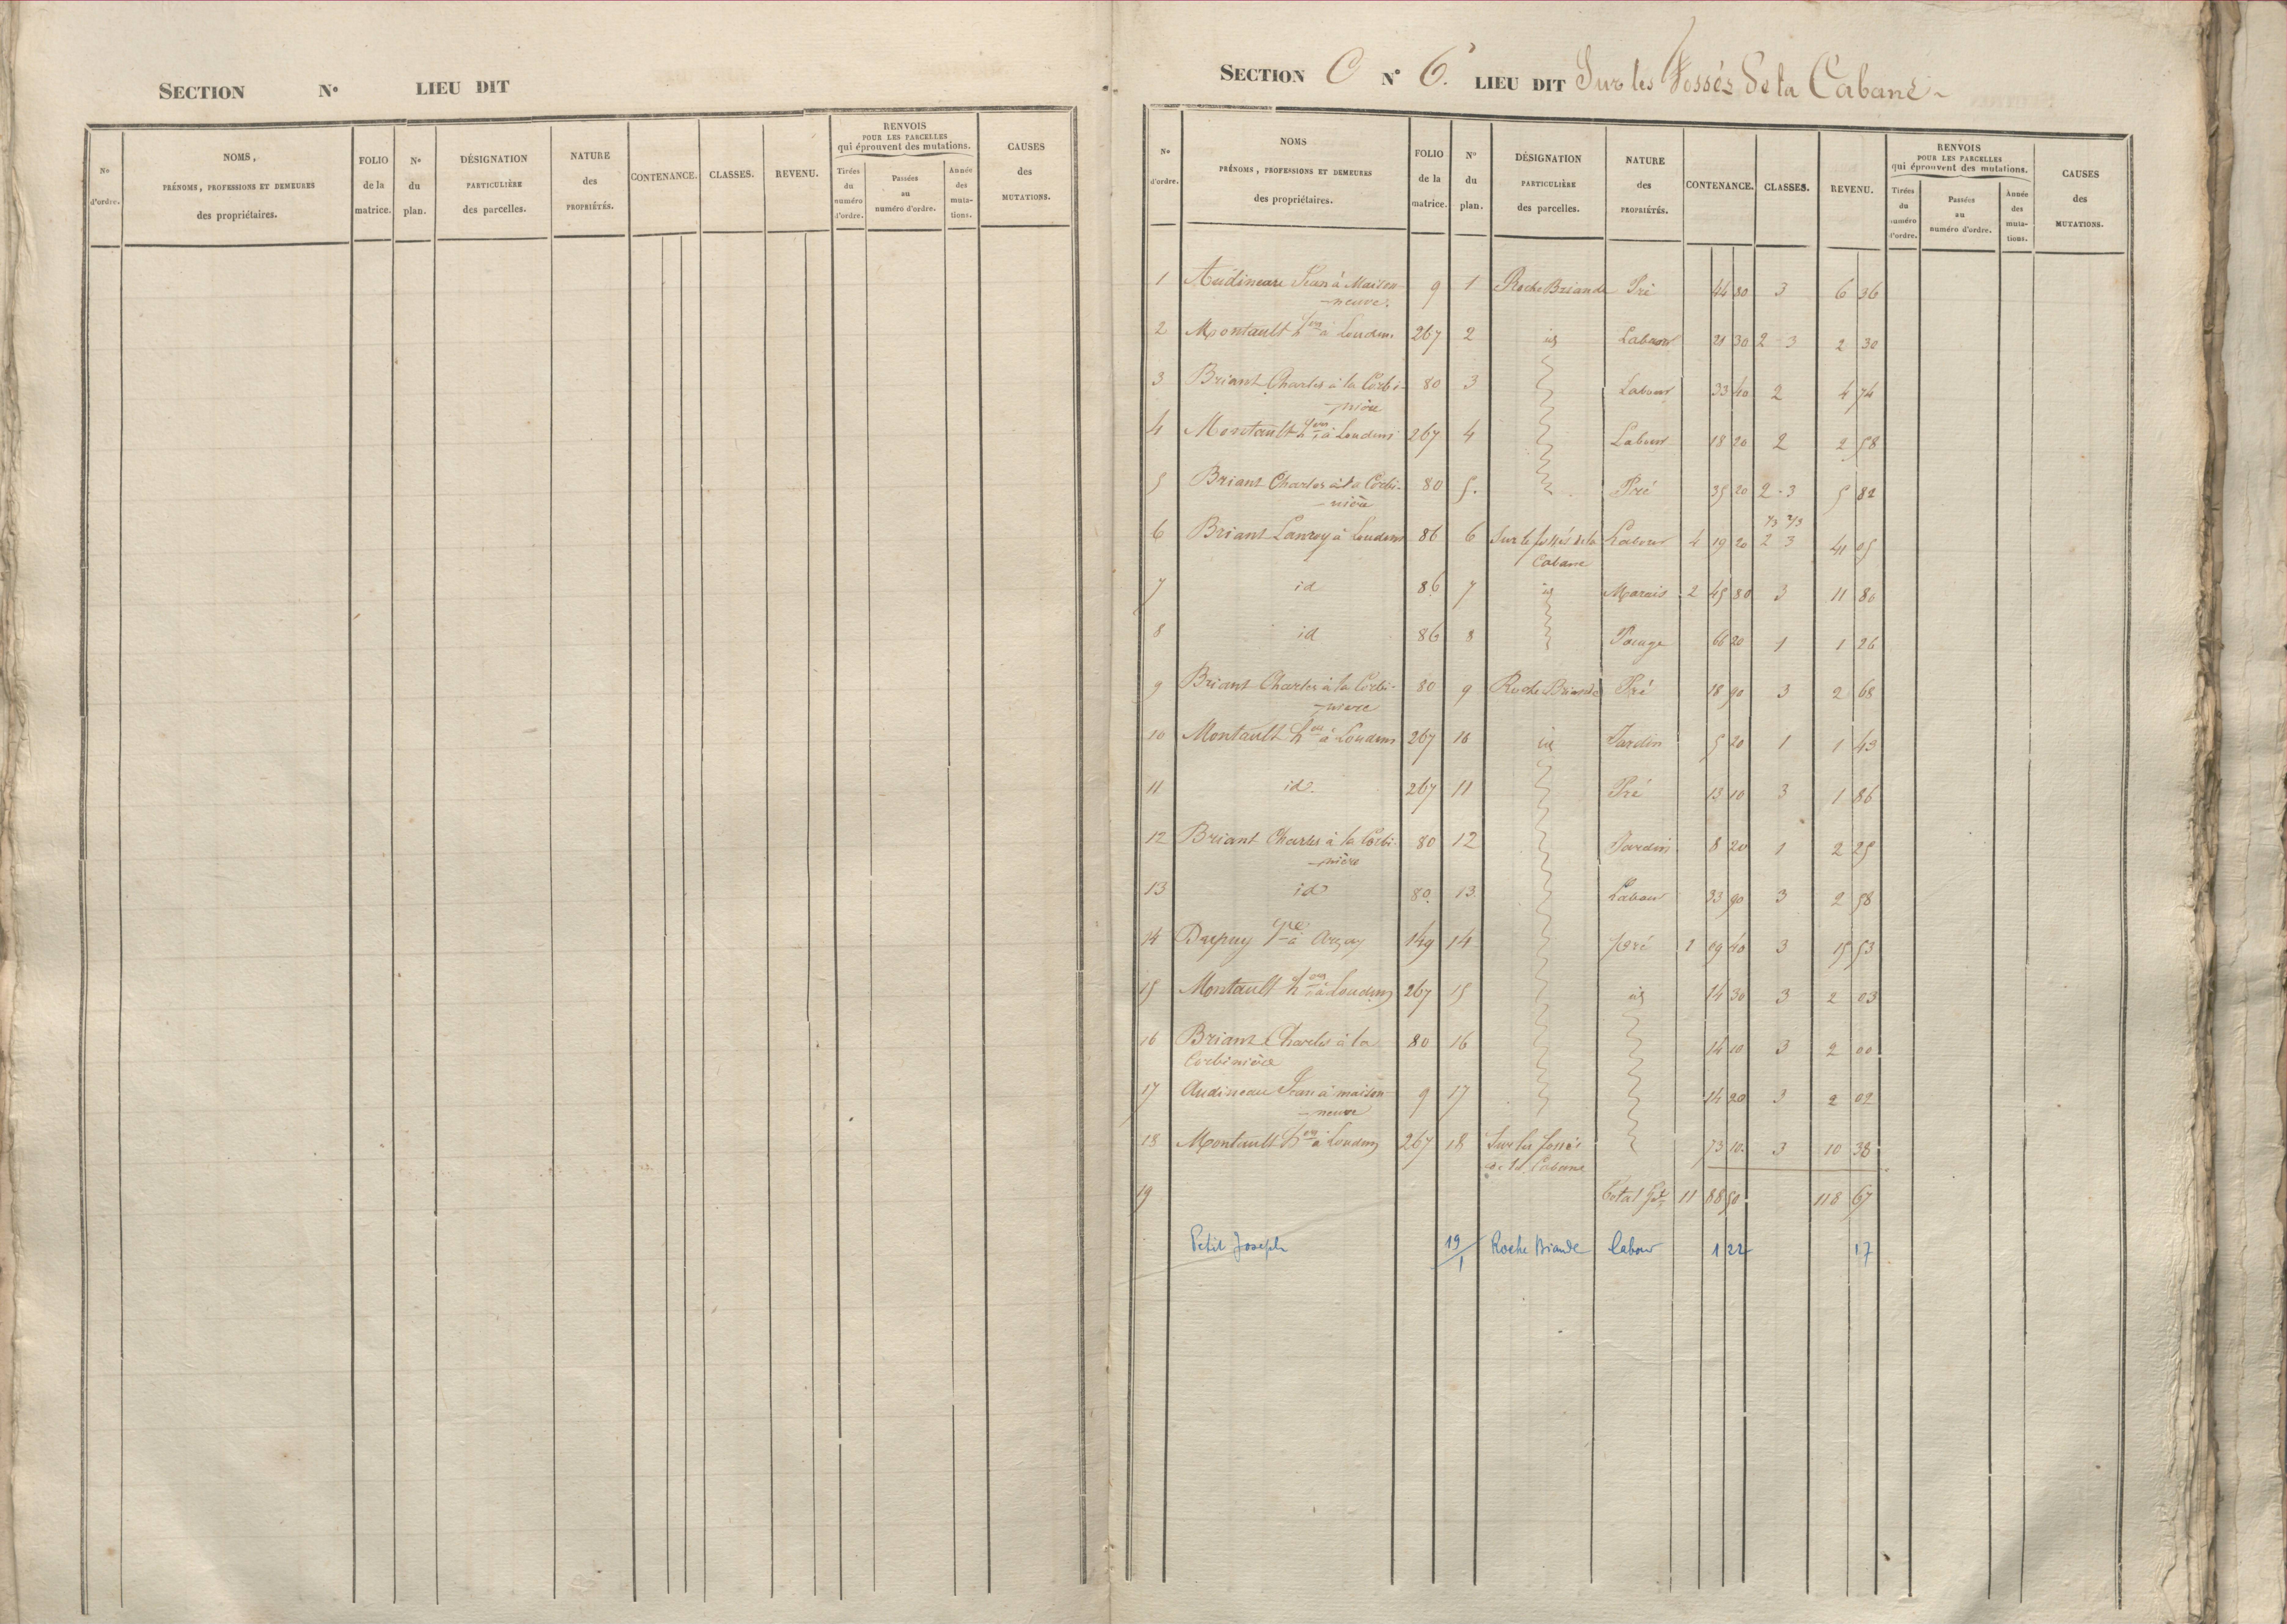 SECTION N° LIEU DIT
N° d'ordre. NOMS, PRÉNOMS, PROFESSIONS ET DEMEURES des propriétaires. FOLIO de la matrice. N° du plan. DÉSIGNATION PARTICULIÈRE des parcelles. NATURE des PROPRIÉTÉS. CONTENANCE. CLASSES. REVENU. RENVOIS POUR LES PARCELLES qui éprouvent des mutations. Tirées du numéro d'ordre. Passées au numéro d'ordre. Année des mutations. CAUSES des MUTATIONS.
SECTION C N° 6. LIEU DIT Sur les Fossés de la Cabane
N° d'ordre. NOMS PRÉNOMS, PROFESSIONS ET DEMEURES des propriétaires. FOLIO de la matrice. N° du plan. DÉSIGNATION PARTICULIÈRE des parcelles. NATURE des PROPRIÉTÉS. CONTENANCE. CLASSES. REVENU. RENVOIS POUR LES PARCELLES qui éprouvent des mutations. Tirées du numéro d'ordre. Passées au numéro d'ordre. Année des mutations. CAUSES des MUTATIONS.
1 Audineau Jean à Maison- 9 1 Roche Briande Pré 44 80 3 6 36
neuve.
2 Montault à Loudun 267 2 id Labour 21 30 2 3 2 30
3 Briant Charles à la Corbi- 80 3 Labour 33 40 2 4 74
nière
4 Montault à Loudun 267 4 Labour 18 20 2 2 58
5 Briant Charles à la Corbi- 80 5. Pré 35 20 2-3 5 82
nière
1/3 2/3
6 Briant Lanroy à Loudun 86 6 Sur le fossés de la Labour 4 19 20 2 3 41 05
Cabane
7 id 86 7 id Marais 2 45 80 3 11 80
8 id 86 8 Pacage 66 20 1 1 26
9 Briant Charles à la Corbi- 80 9 Roche Briande Pré 18 90 3 2 68
nière
10 Montault à Loudun 267 10 id Jardin 5 20 1 1 43
11 id. 267 11 Pré 13 10 3 1 86
12 Briant Charles à la Corbi- 80 12 Jardin 8 20 1 2 25
nière
13 id 80 13 Labour 33 90 3 2 58
14 Dupuy à Arçay 149 14 pré 1 09 40 3 15 53
15 Montault à Loudun 267 15 id 14 30 3 2 03
16 Briant Charles à la 80 16 14 10 3 2 00
Corbinière
17 Audineau Jean à maison- 9 17 14 20 3 2 02
neuve
18 Montault à Loudun 267 18 Sur les fossés 73 10 3 10 38
de la Cabane
19 total 11 88 50 118 67
Petit Joseph 19/1 Roche Briande labour 1 22 17